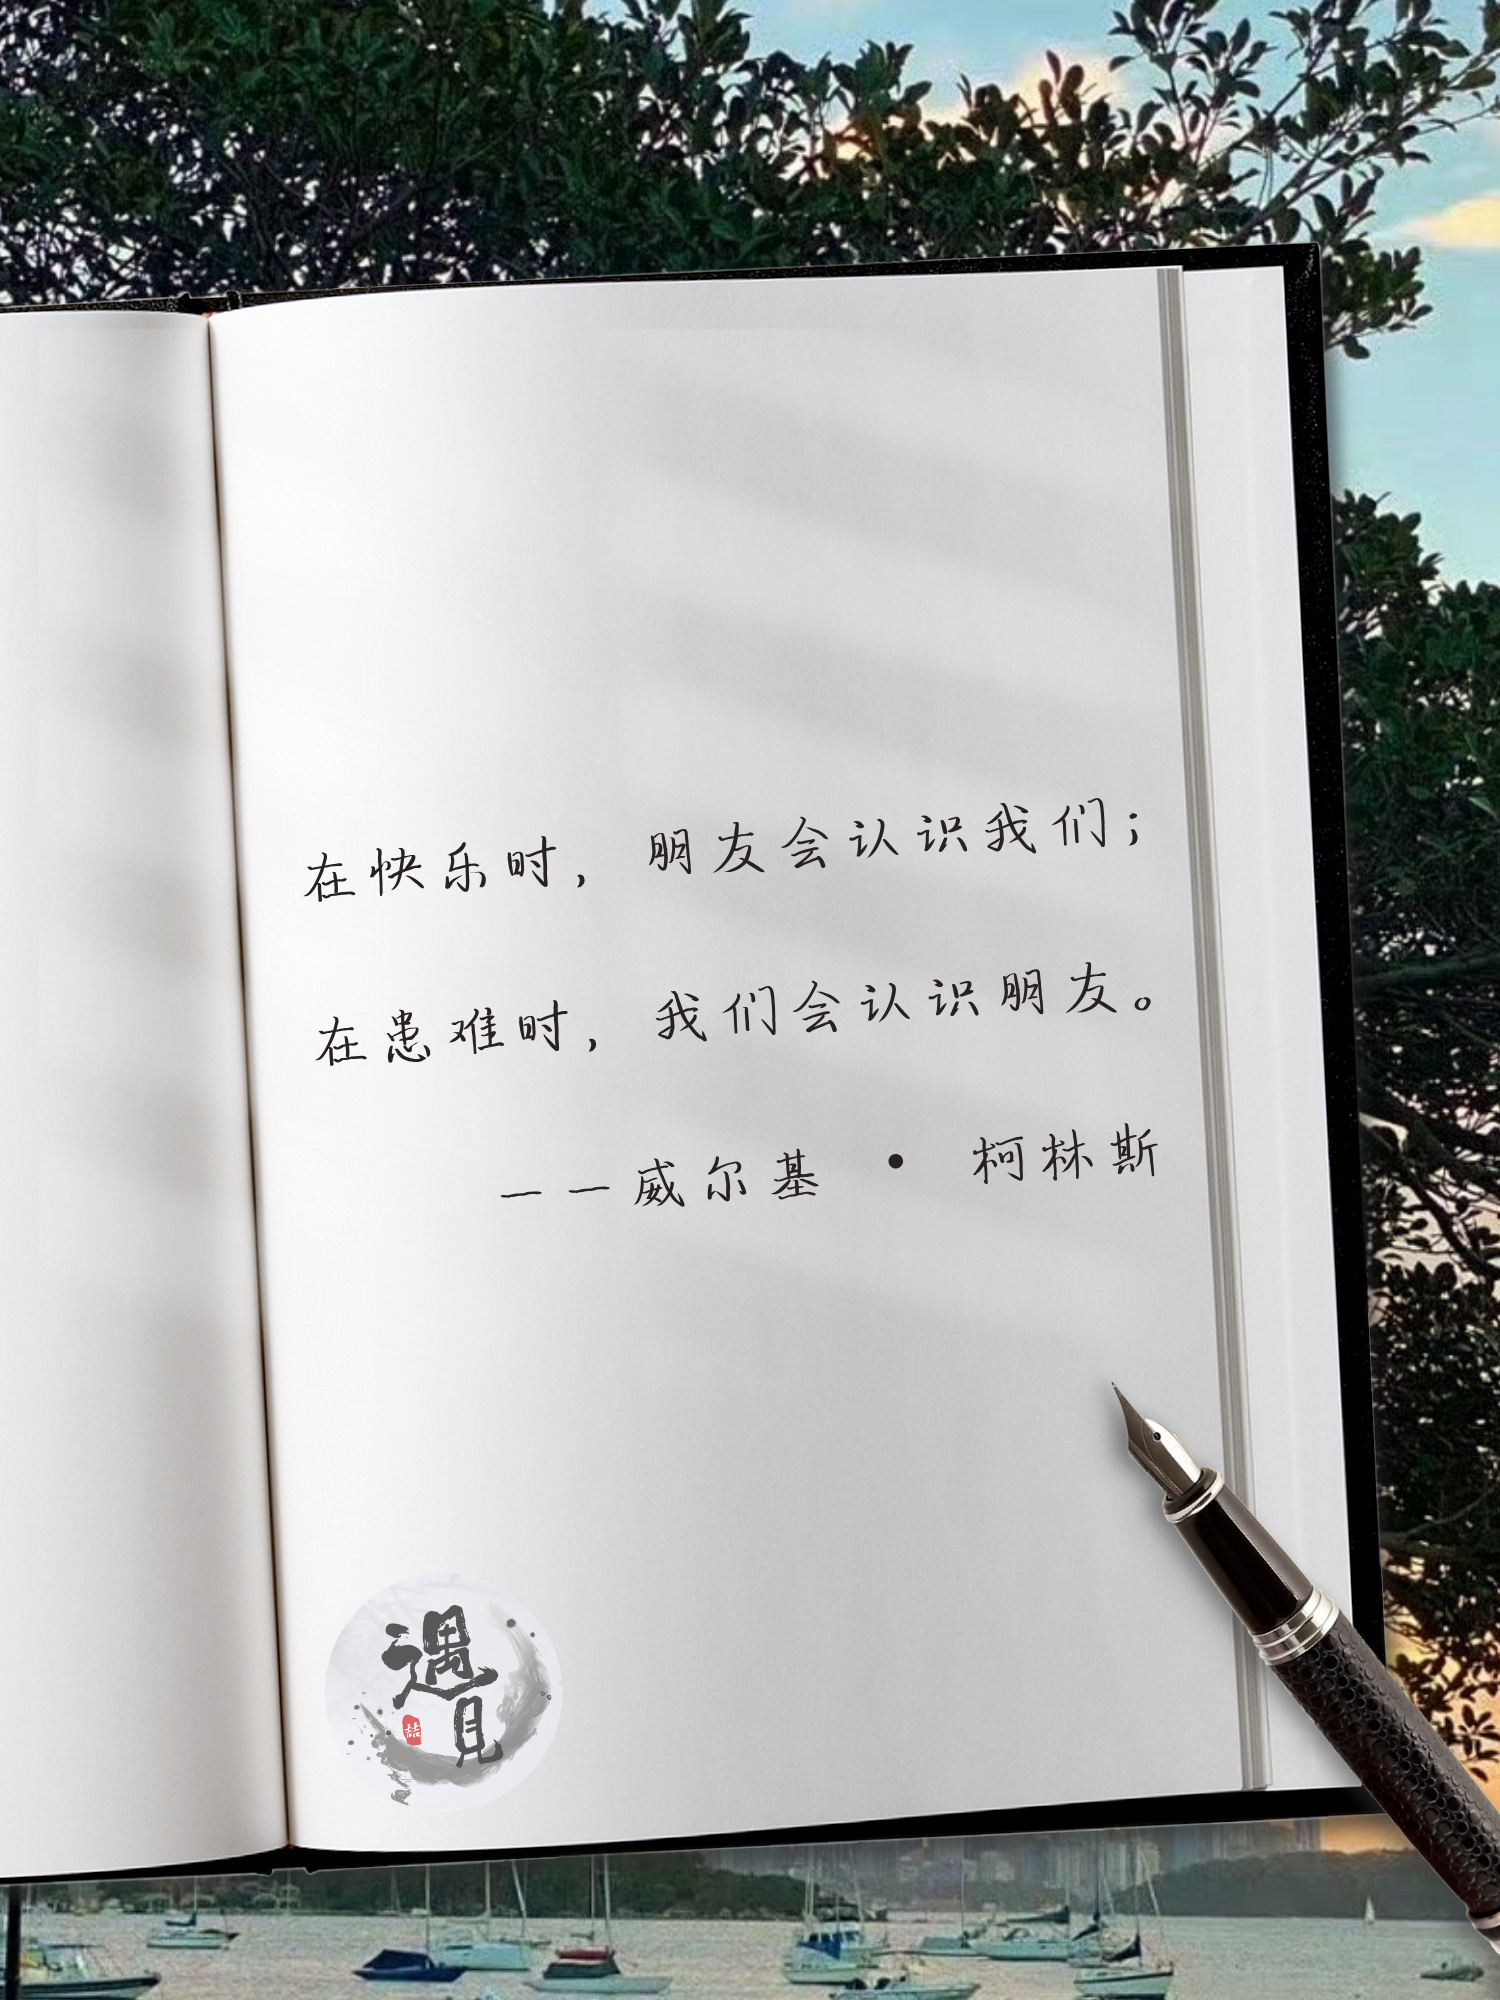 在快乐时，朋友会认识我们；
在患难时，我们会认识朋友。
——威尔基 • 柯林斯
遇
見
喆